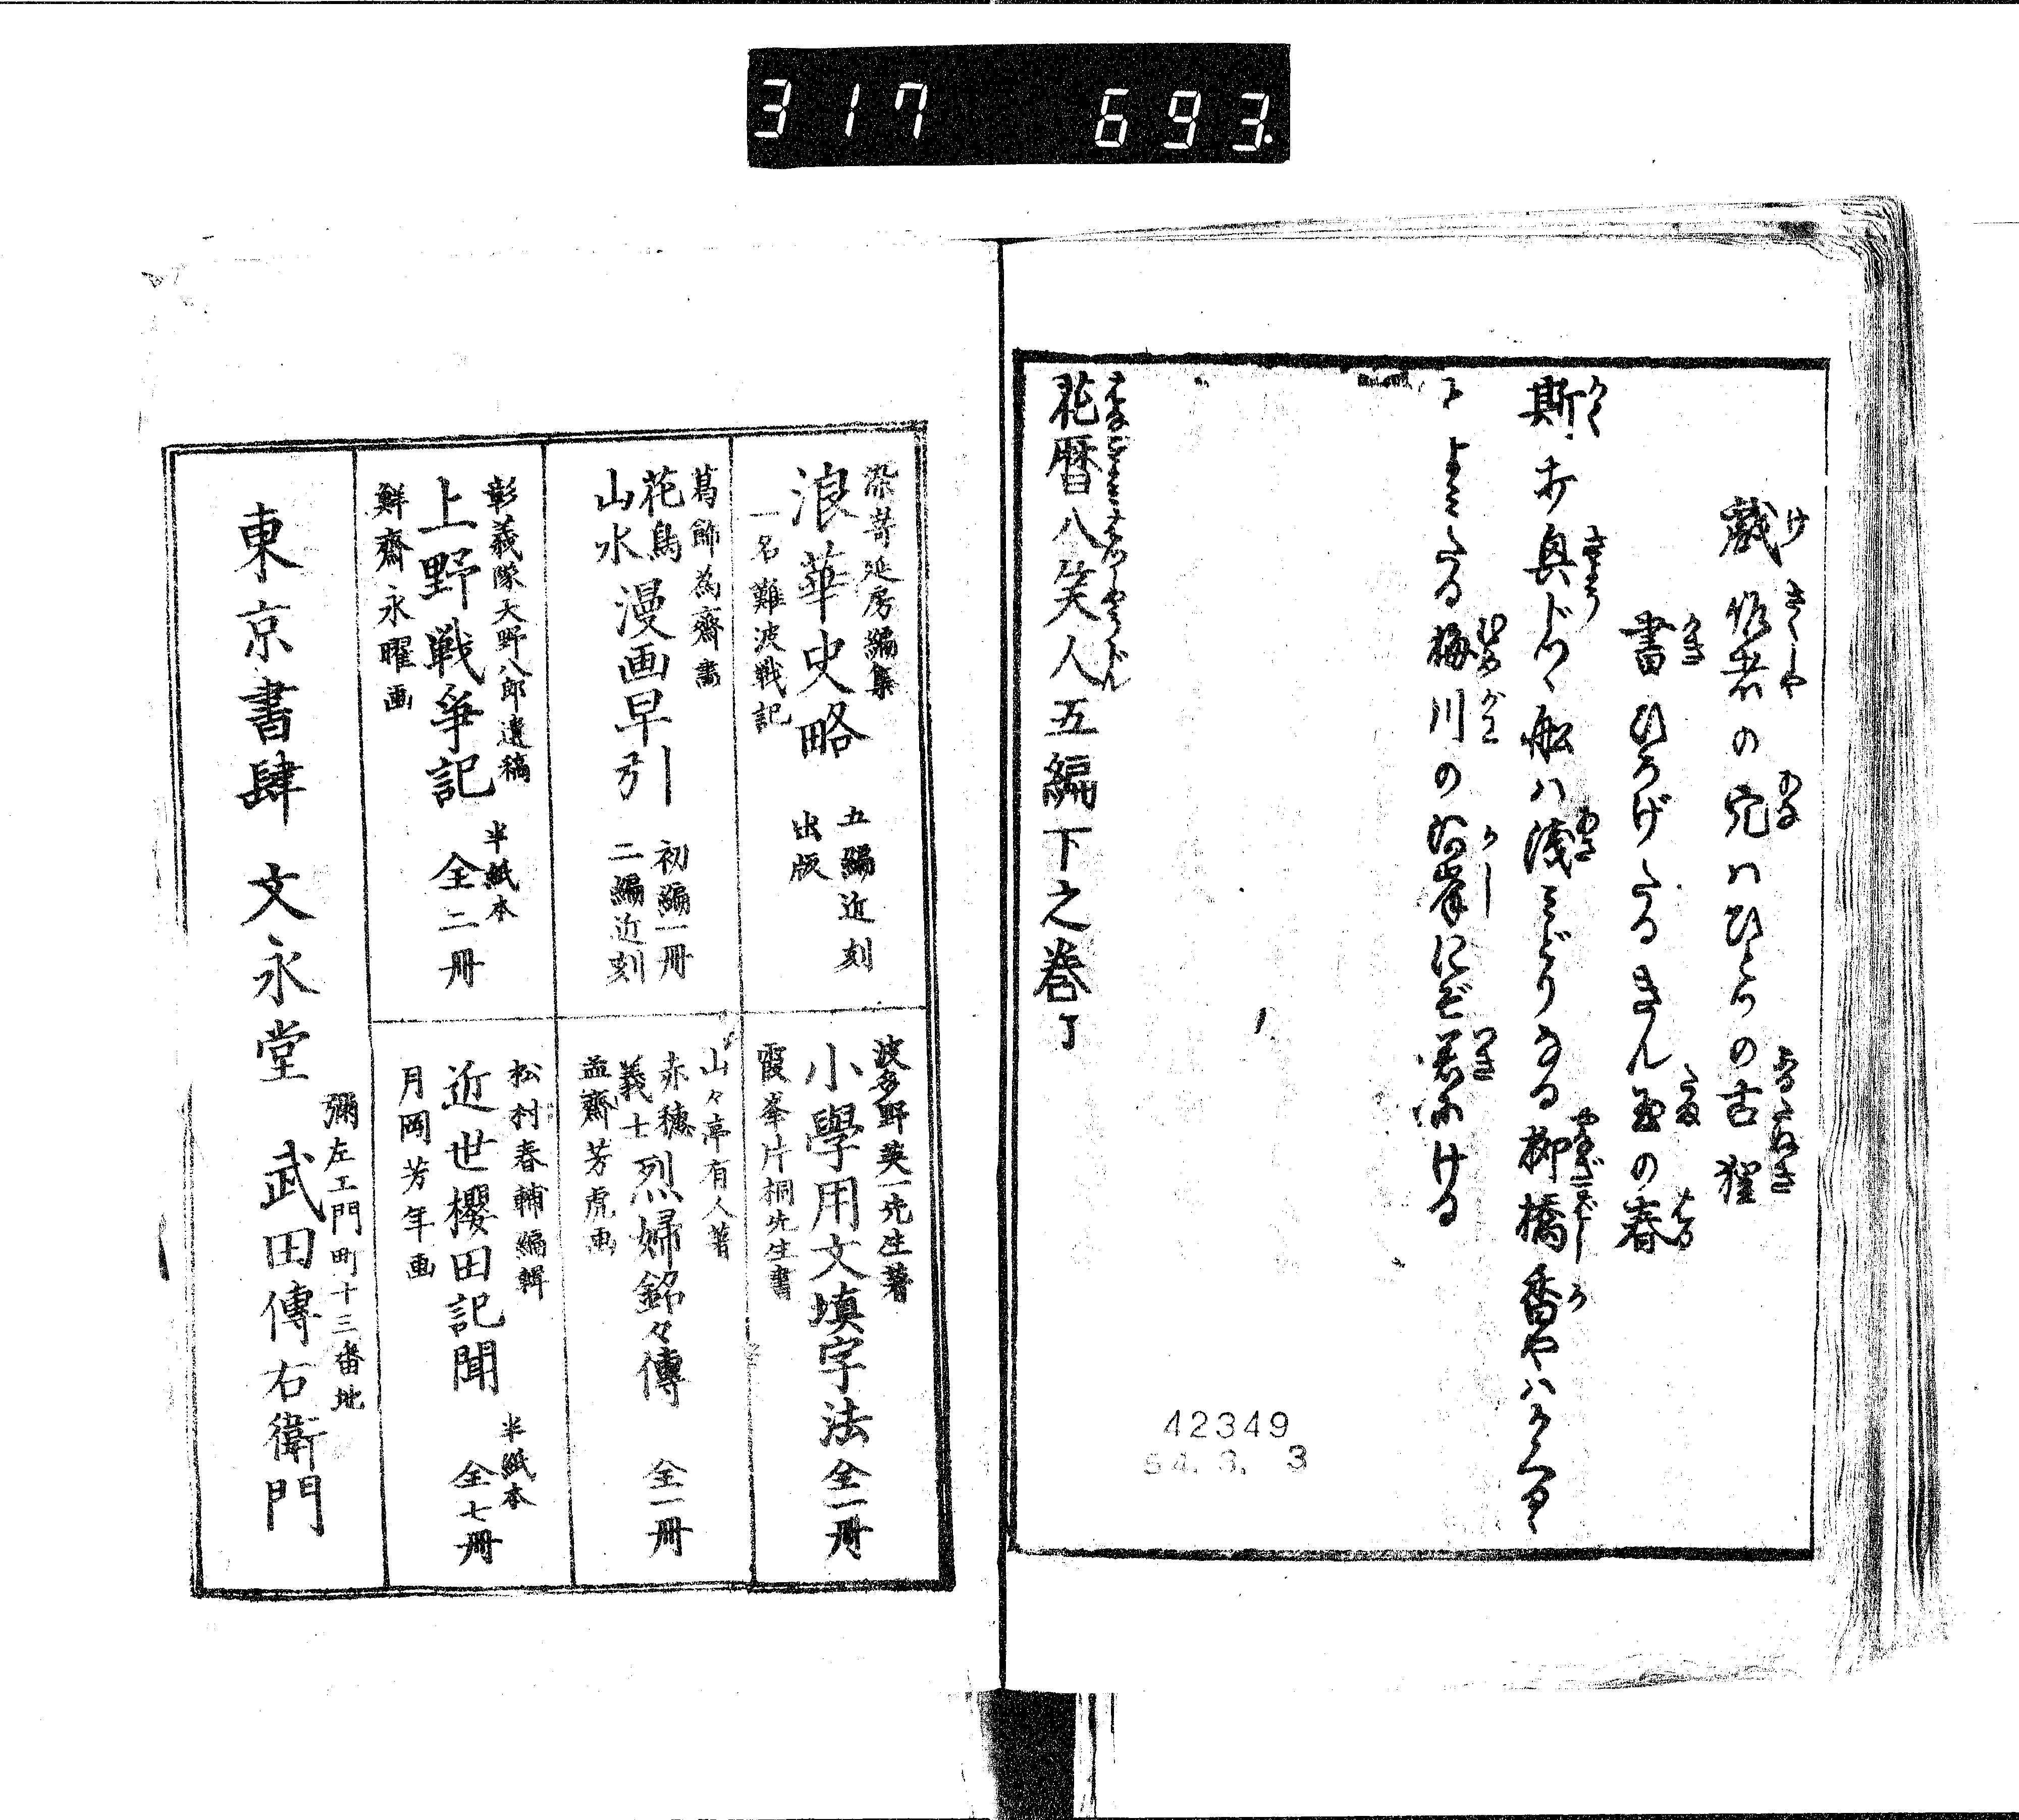 317 693.
戯作者の穴はひとつの古狸
書ひろげたるきん玉の春
よミたる梅川の河岸にぞ着にける
花暦八笑人五編下之巻了
42349
54.3.3
染崎延房編集
浪華史略
一名難波戦記
五編近刻
出版
葛飾為齋畫
花鳥
山水
漫画早引
初編一冊
二編近刻
彰義隊天野八郎遺稿
上野戦争記
半紙本
全二冊
鮮齋永曜画
波多野英一先生著
小學用文填字法 全一冊
霞峯片桐先生書
山々亭有人著
赤穂
義士
烈婦銘々傳 全一冊
孟齋芳虎画
松村春輔編輯
近世櫻田記聞
半紙本
全七冊
月岡芳年画
彌左エ門町十三番地
東京書肆 文永堂 武田傳右衛門